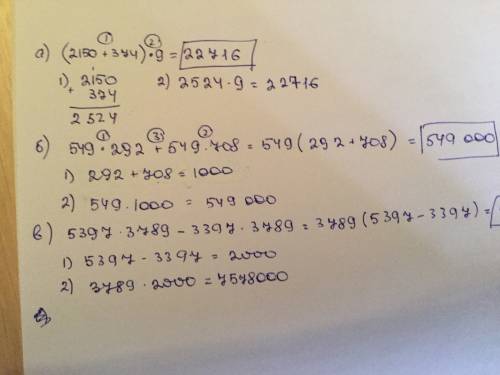 а) (2150 + 374) · 9 = 22716
1) 2150
+ 374
2524
2) 2524 · 9 = 22716
б) 549 · 292 + 549 · 708 = 549 (292 + 708) = 549 000
1) 292 + 708 = 1000
2) 549 · 1000 = 549 000
в) 5397 · 3789 - 3397 · 3789 = 3789 (5397 - 3397) =
1) 5397 - 3397 = 2000
2) 3789 · 2000 = 7578000